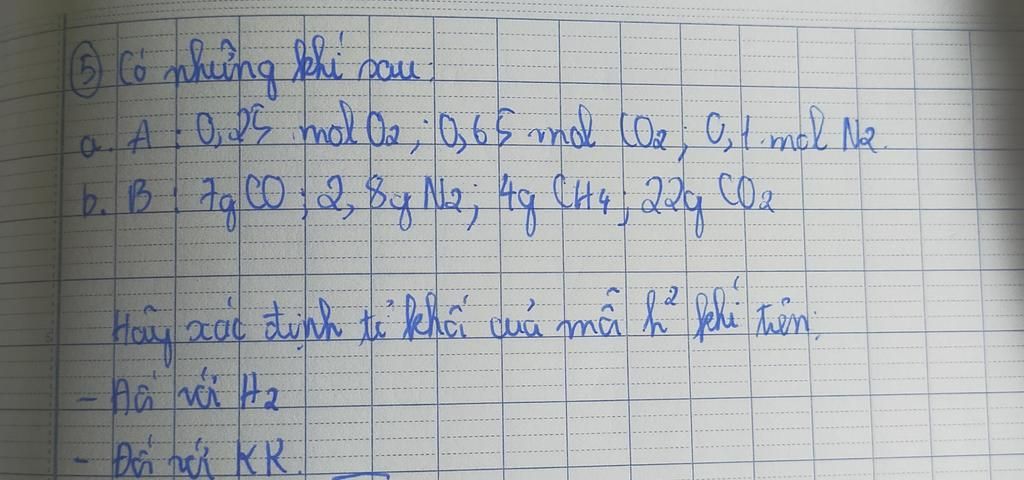 ⑤ Có những khí sau:
a. A: 0,25 mol O2; 0,65 mol CO2; 0,1 mol N2.
b. B: 7g CO; 2,8g N2; 4g CH4; 22g CO2
Hãy xác định tỉ khối của mỗi h² khí trên:
- Đối với H2
- Đối với KK.